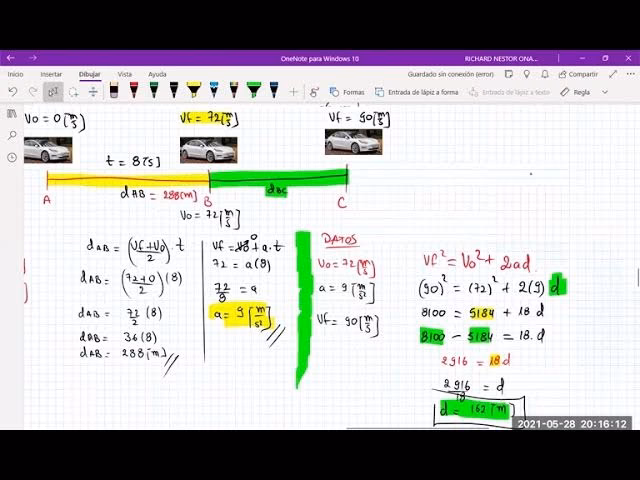 OneNote para Windows 10
RICHARD NESTOR ONA...
Archivo Inicio Insertar Dibujar Historial Revisar Vista Ayuda
Guardado sin conexión (error)
Compartir
Formas
Entrada de lápiz a forma
Entrada de lápiz a texto
Regla
Vo = 0 [m/s]
Vf = 72 [m/s]
Vf = 90 [m/s]
t = 8 [s]
A B C
dAB = 288 [m]
dBC
Vo = 72 [m/s]
dAB = (Vf+Vo/2) . t
dAB = (72+0/2) (8)
dAB = 72/2 (8)
dAB = 36 (8)
dAB = 288 [m]
Vf = Vo + a . t
0
72 = a (8)
72/8 = a
a = 9 [m/s²]
DATOS
Vo = 72 [m/s]
a = 9 [m/s²]
Vf = 90 [m/s]
Vf² = Vo² + 2ad
(90)² = (72)² + 2(9) d
8100 = 5184 + 18 d
8100 - 5184 = 18. d
2916 = 18 d
2916/18 = d
d = 162 [m]
2021-05-28 20:16:12